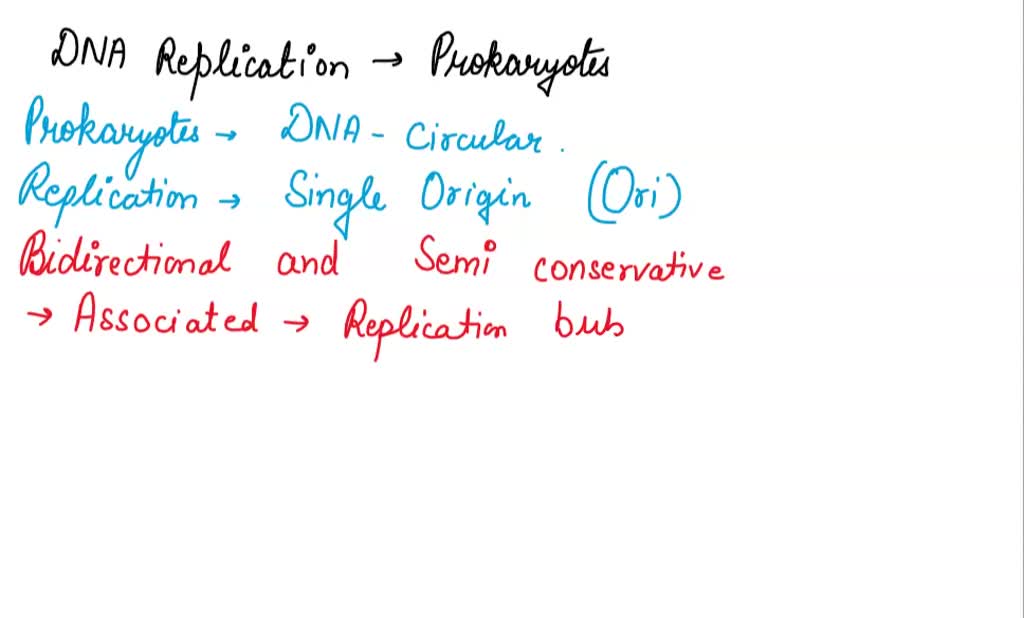 DNA Replication → Prokaryotes
Prokaryotes → DNA - Circular.
Replication → Single Origin (Ori)
Bidirectional and Semi conservative
→ Associated → Replication bub